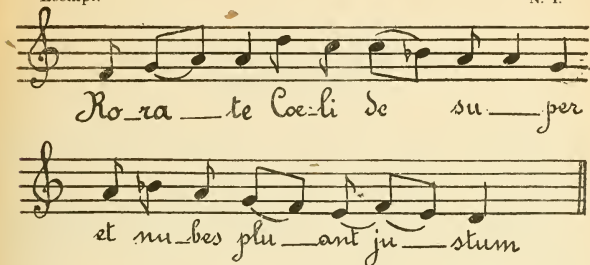 Exempl. N. 1.
Ro_ra __ te Cœ-li de su.__ per
et nu_bes plu__ant ju__stum